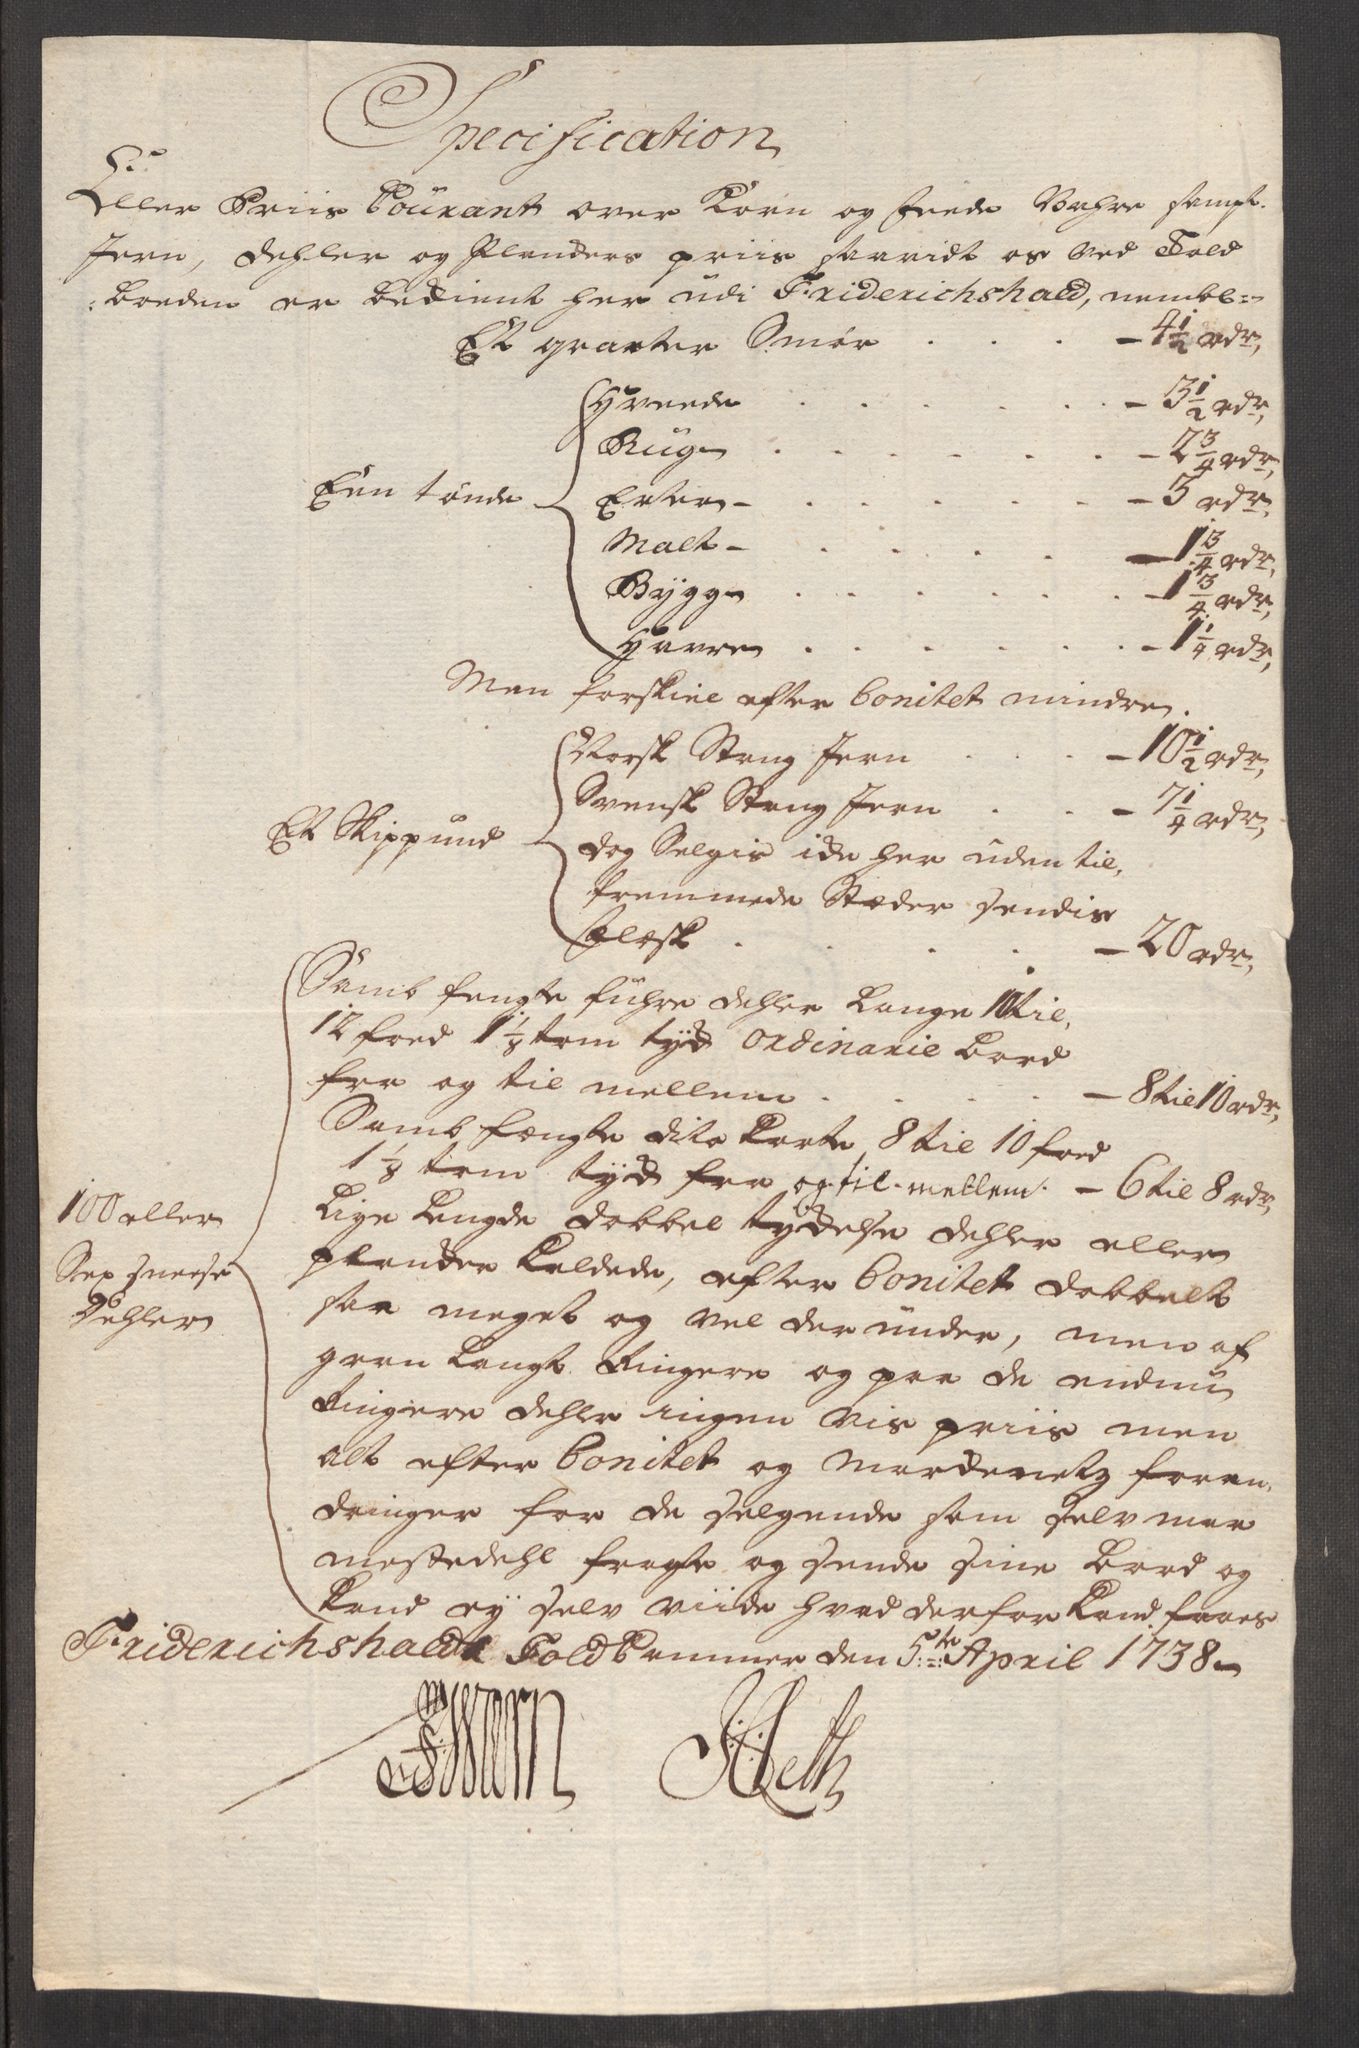 Specification
Eller Priis Courant over Korn og feede Vahre sampt
Jern, dehler og Planckers priis saavidt os ved Told
boeden er bekient her udi Friderichshald, nembl:
Et qvarter Smør . . . - 4 1/2 rdr,
Een tønde
Hveede . . . . . - 3 1/2 rdr,
Rug . . . . . - 2 3/4 rdr,
Erter - . . . . . - 3 rdr,
Malt - . . . . - 1 3/4 rdr,
Bÿgg . . . . . - 1 3/4 rdr,
Havre . . . . . - 1 1/4 rdr,
Men forskiel efter bonitet mindre.
Et Skippund
Norsk Stang Jern . . . - 10 1/2 rdr,
Svensk Stang Jern . . . - 7 1/4 rdr,
dog Selgis icke her uden til
fremmede Stæder sendis
Flesk . . . . - 20 rdr,
100 eller
Sex sneese
Dehler
Samb fengte führe dehler lange 10 til
12 foed 1 1/8 tom tÿck ordinarie bord
fra og til mellem . . . . - 8 til 10 rdr,
Samb fængte dito korte 8 til 10 foed
1 1/8 tom tÿck fra og til mellem. - 6 til 8 rdr,
Lige lengde dobbel tÿckelse dehler eller
plancker kaldede, efter bonitet dobbelt
saa meget og vel derunder, men af
gran langt Ringere og paa de endnu
Ringere dehler ingen vis priis men
alt efter bonitet og marckenetz foran
dringer for de selgende som selv maa
mestedehl fragte og sende sine bord og
kand eÿ selv viide hvad derfor kand faaes
Friderichshalds Told Cammer den 5:te April 1738